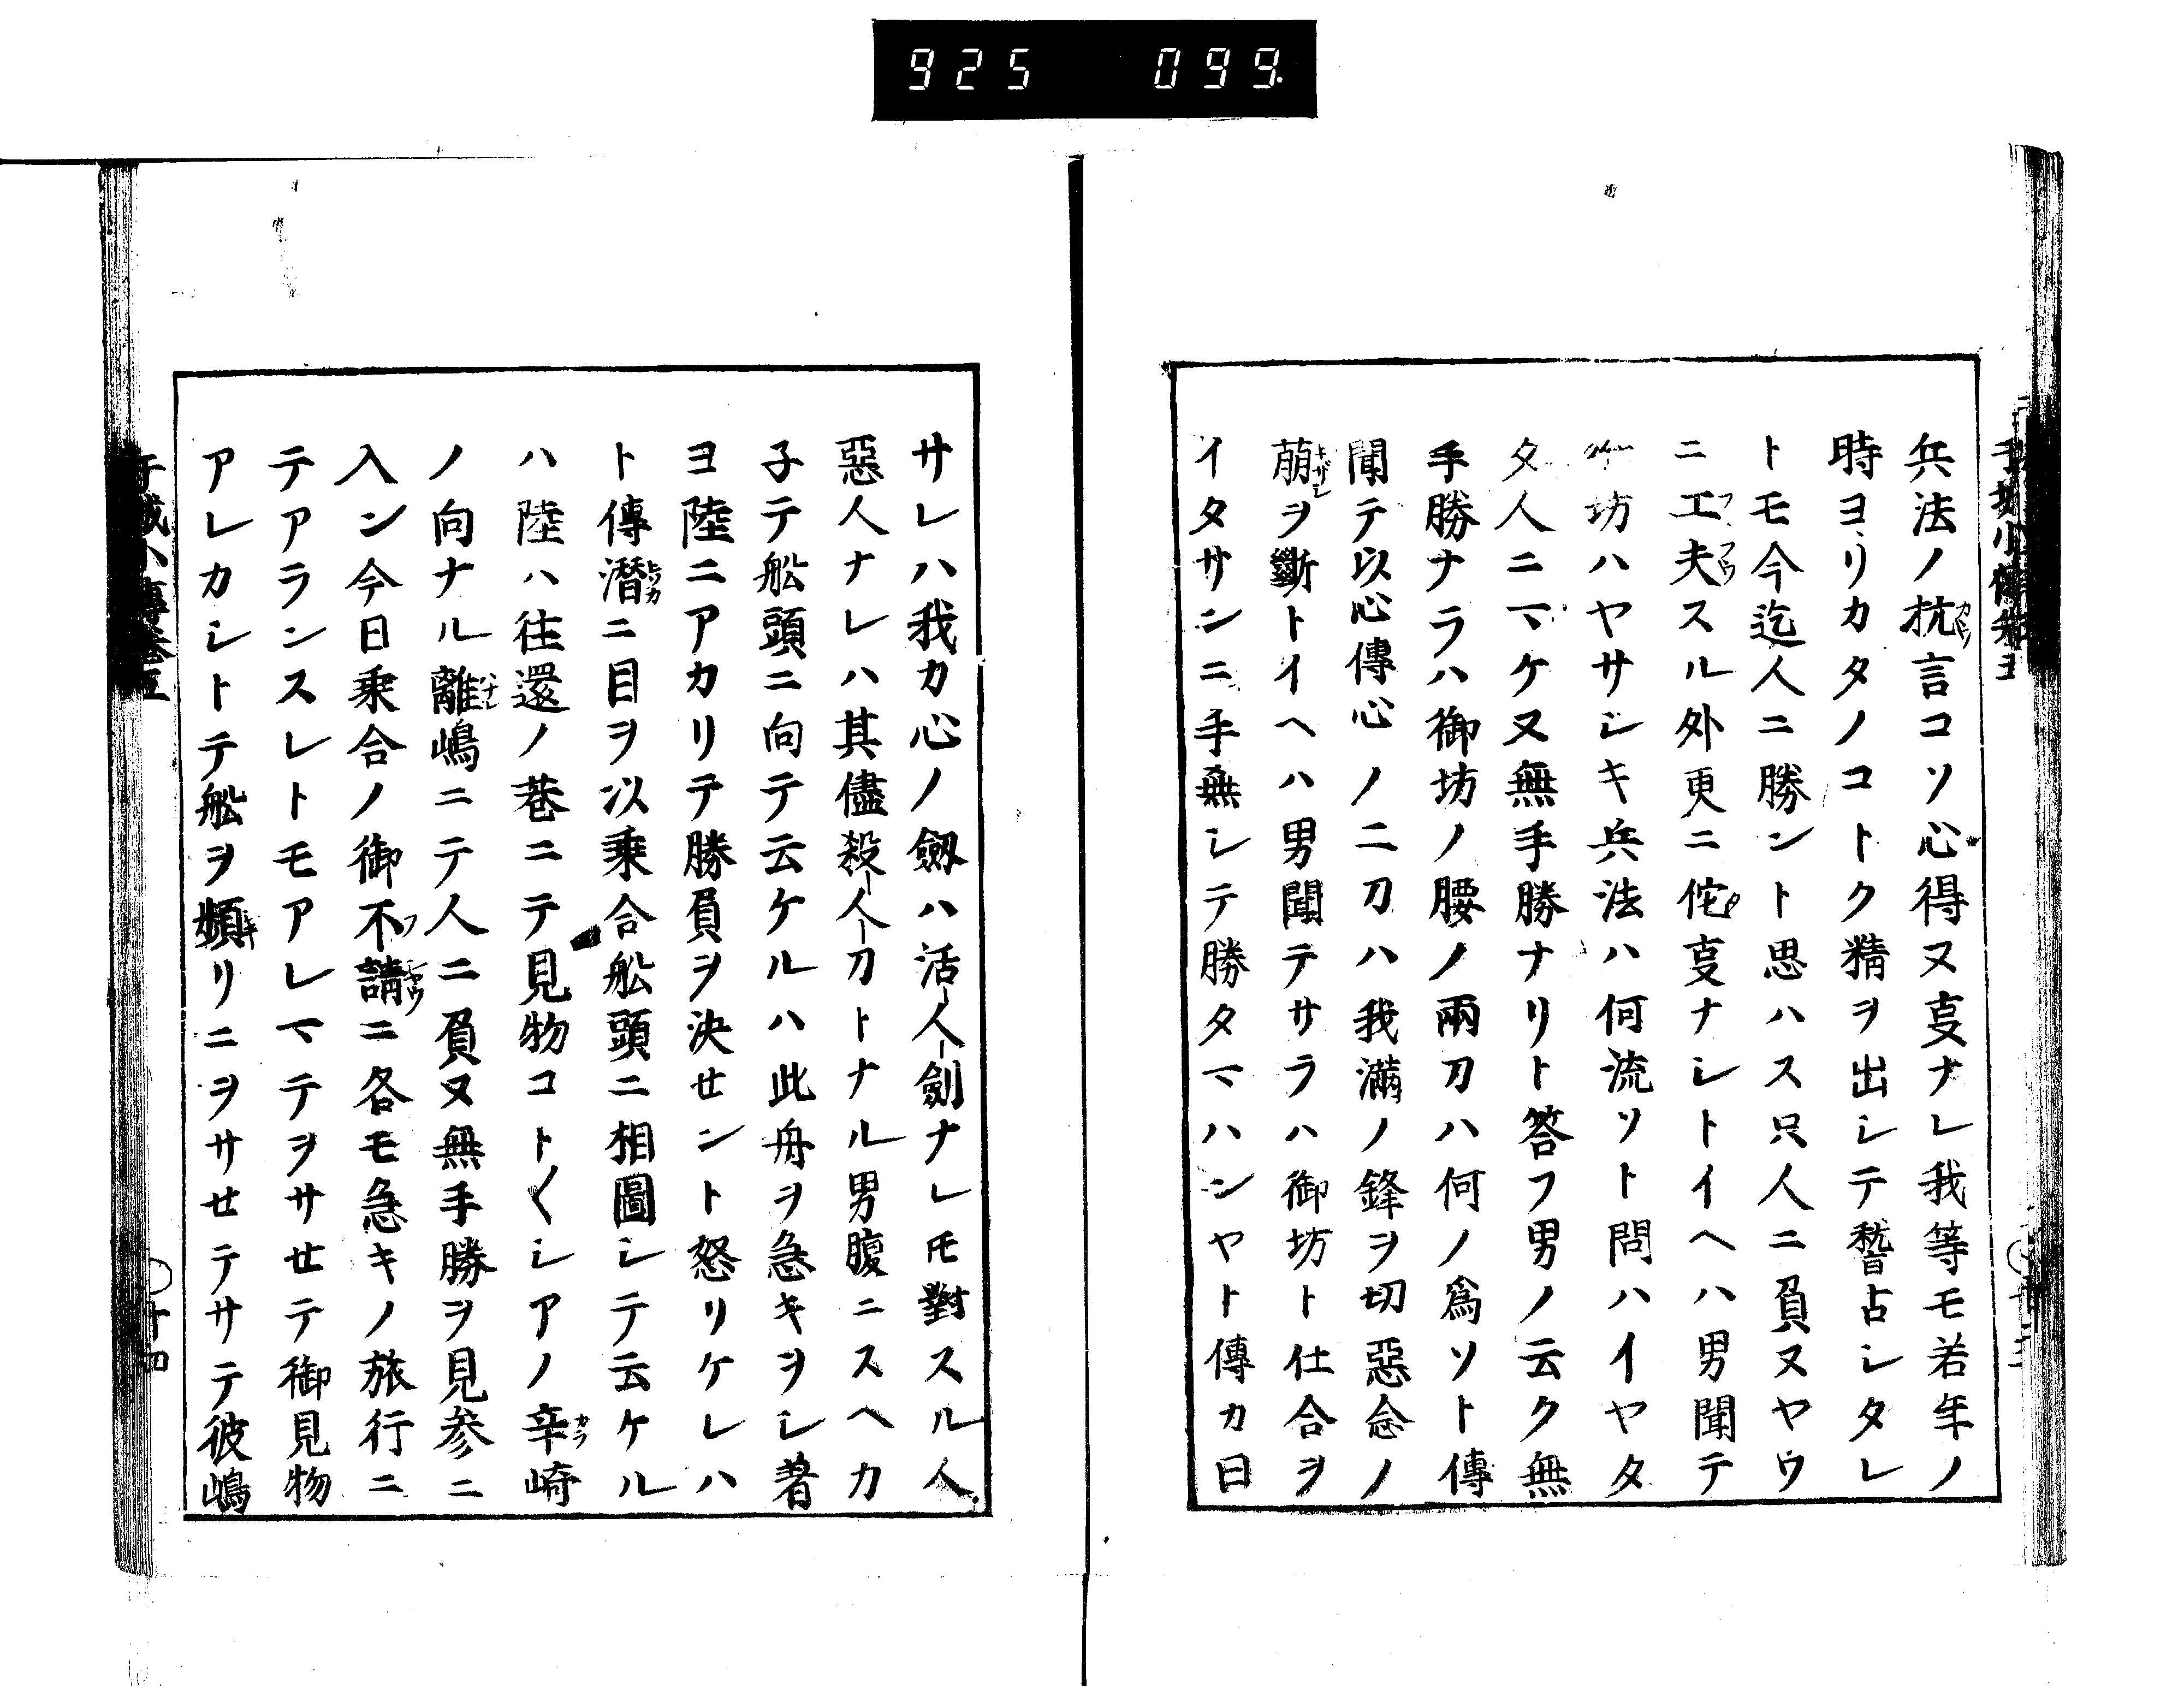 925 099.
兵法ノ抗言コソ心得ヌ㕝ナレ我等モ若年ノ
時ヨリカタノコトク精ヲ出シテ嵇古シタレ
トモ今迄人ニ勝ント思ハス只人ニ負ヌヤウ
ニ工夫スル外更ニ佗㕝ナシトイヘハ男聞テ
坊ハヤサシキ兵法ハ何流ソト問ハイヤタ
タ人ニマケヌ無手勝ナリト答フ男ノ云ク無
手勝ナラハ御坊ノ腰ノ兩刀ハ何ノ爲ソト傳
聞テ以心傳心ノ二刀ハ我滿ノ鋒ヲ切惡念ノ
萠ヲ斷トイヘハ男聞テサラハ御坊ト仕合ヲ
イタサンニ手無シテ勝タマハンヤト傳カ曰
サレハ我カ心ノ劔ハ活人劍ナレ𪜈對スル人
惡人ナレハ其儘殺人刀トナル男腹ニスヘカ
子テ舩頭ニ向テ云ケルハ此舟ヲ急キヲシ著
ヨ陸ニアカリテ勝負ヲ決せント怒リケレハ
ト傳潛ニ目ヲ以乘合舩頭ニ相圖シテ云ケル
ハ陸ハ往還ノ巷ニテ見物コト〱シアノ辛崎
ノ向ナル離嶋ニテ人ニ負ヌ無手勝ヲ見参ニ
入ン今日乘合ノ御不請ニ各モ急キノ旅行ニ
テアランスレトモアレマテヲサせテ御見物
アレカシトテ舩ヲ頻リニヲサせテサテ彼嶋
十四